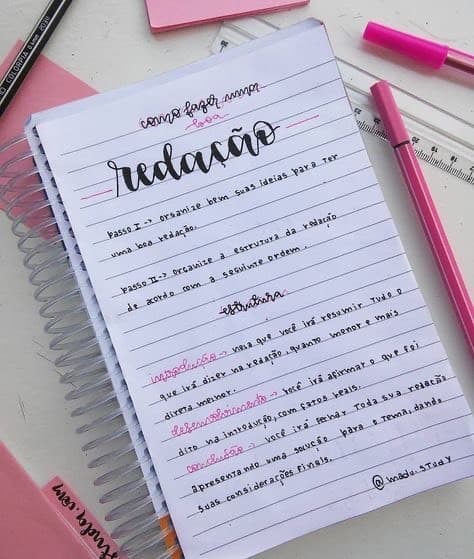 como fazer uma
boa
redação
Passo I -> organize bem suas ideias para ter
uma boa redação.
Passo II -> organize a estrutura da redação
de acordo com a seguinte ordem.
estrutura
introdução -> nela que você irá resumir tudo o
que irá dizer na redação, quanto menor e mais
direta melhor.
desenvolvimento -> você irá afirmar o que foi
dito na introdução, com fatos reais.
conclusão -> você irá fechar toda sua redação
apresentando uma solução para o tema, dando
suas considerações finais.
@madu.study
COLORPIA